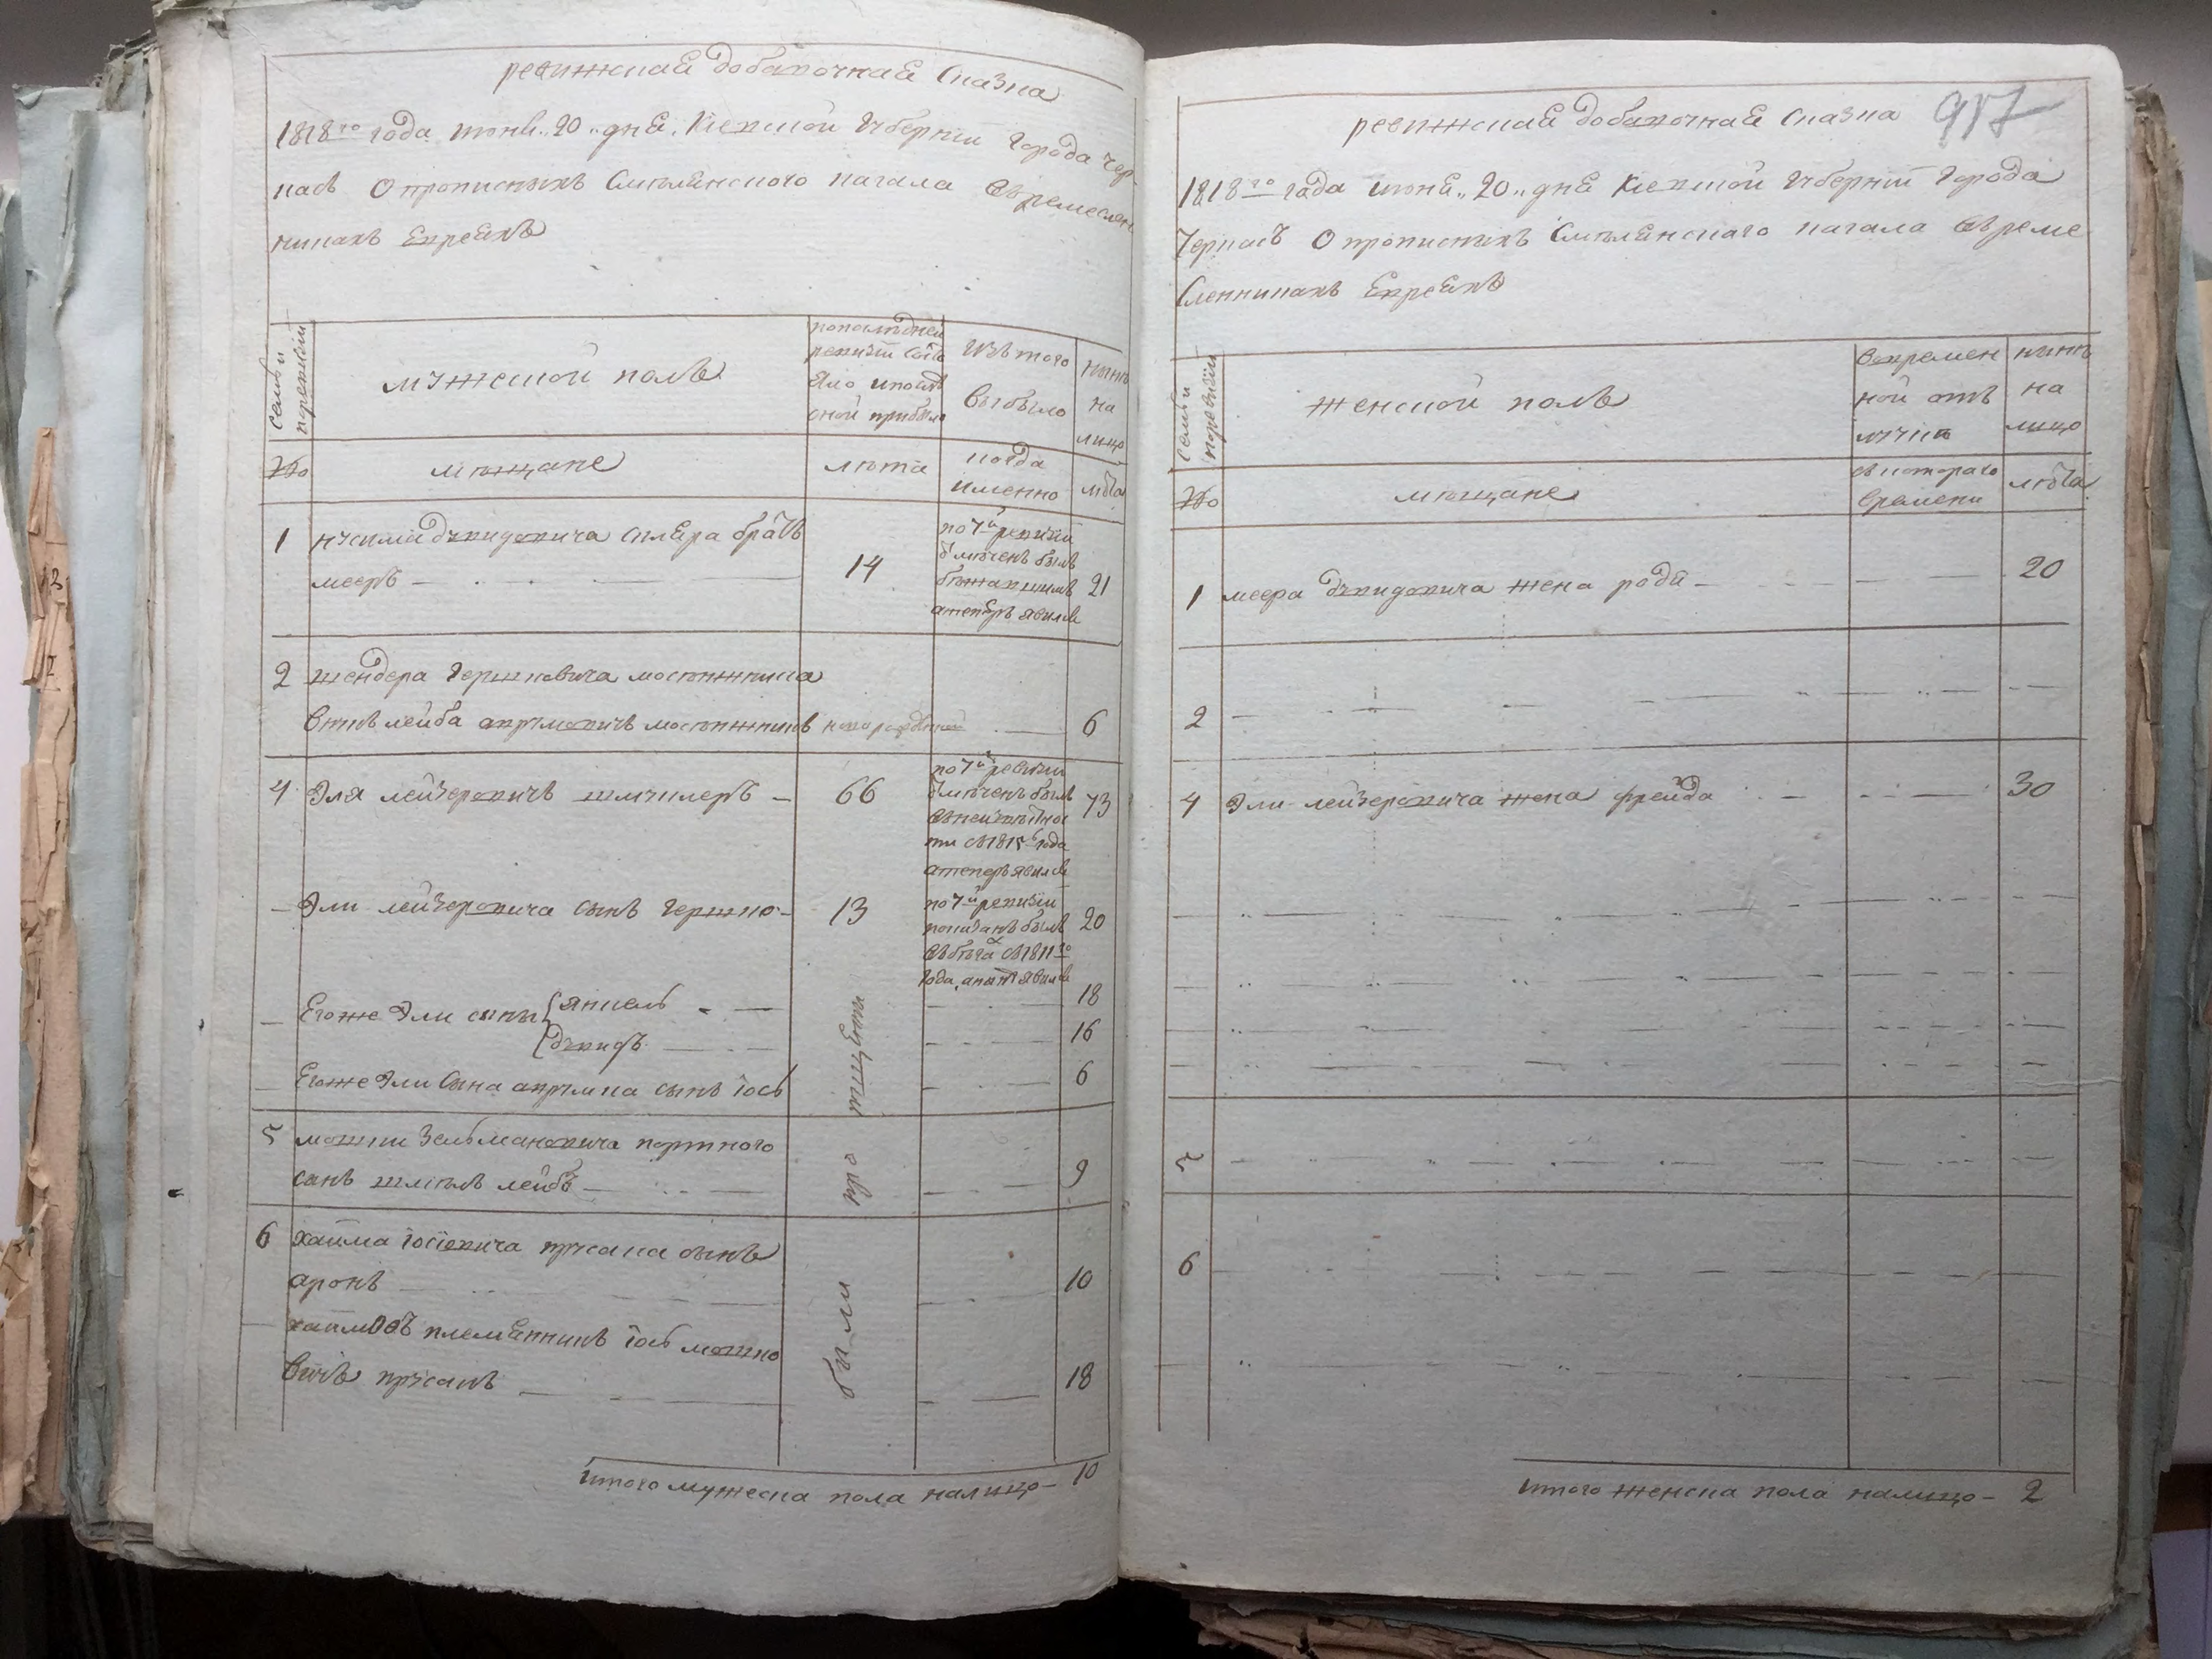 ревижская добавочная Сказка
1818го года июня 20 дня Киевской Губернии Города Чер-
касъ О прописныхъ Смелянского кагала Евремеслен
никахъ Евреяхъ
Семьи по ревизии
мужеской полъ
по последней
ревизии состо
яло и после
оной прибыло
Изъ того
выбыло
ныне
на
лицо
№
мещане
лета
когда
именно
лета
1 Нусима Дувидовича братъ
мееръ
14
по 7й ревизии
былъ
бежавшимъ
а теперь явился
21
2 шендера Гершковича
внукъ лейба Аврумовичъ
новорожденной
6
4 Эля лейзеровичъ шмуклеръ
66
по 7й ревизии
былъ
съ 1815 года
а теперь явился
73
Эли лейзеровича сынъ Гершко
13
по 7й ревизии
показанъ былъ
въ бегахъ съ 1811го
года, а ныне явился
20
Егоже Эли сыны янкель
18
дувидъ
16
Егоже Эли Сына аврумка сынъ іось
6
пропущены были
5 мошки Зельмановича портного
сынъ шліома лейбъ
9
6 хаима іосіовича прусака сынъ
аронъ
10
хаимовъ племянникъ іось мошко
вичъ прусакъ
18
Итого мужеска пола налицо 10
917
ревижская добавочная Сказка
1818го года июня 20 дня Киевской Губернии Города
Черкасъ О прописныхъ Смелянскаго кагала Евреме
сленникахъ Евреяхъ
Семьи по ревизии
женской полъ
Во времен
ной отъ
лучке
ныне
на
лицо
№
мещане
съ котораго
времени
лета
1 меера дувидовича жена рода
20
2
4 Эли лейзеровича жена фрейда
30
5
6
Итого женска пола налицо 2